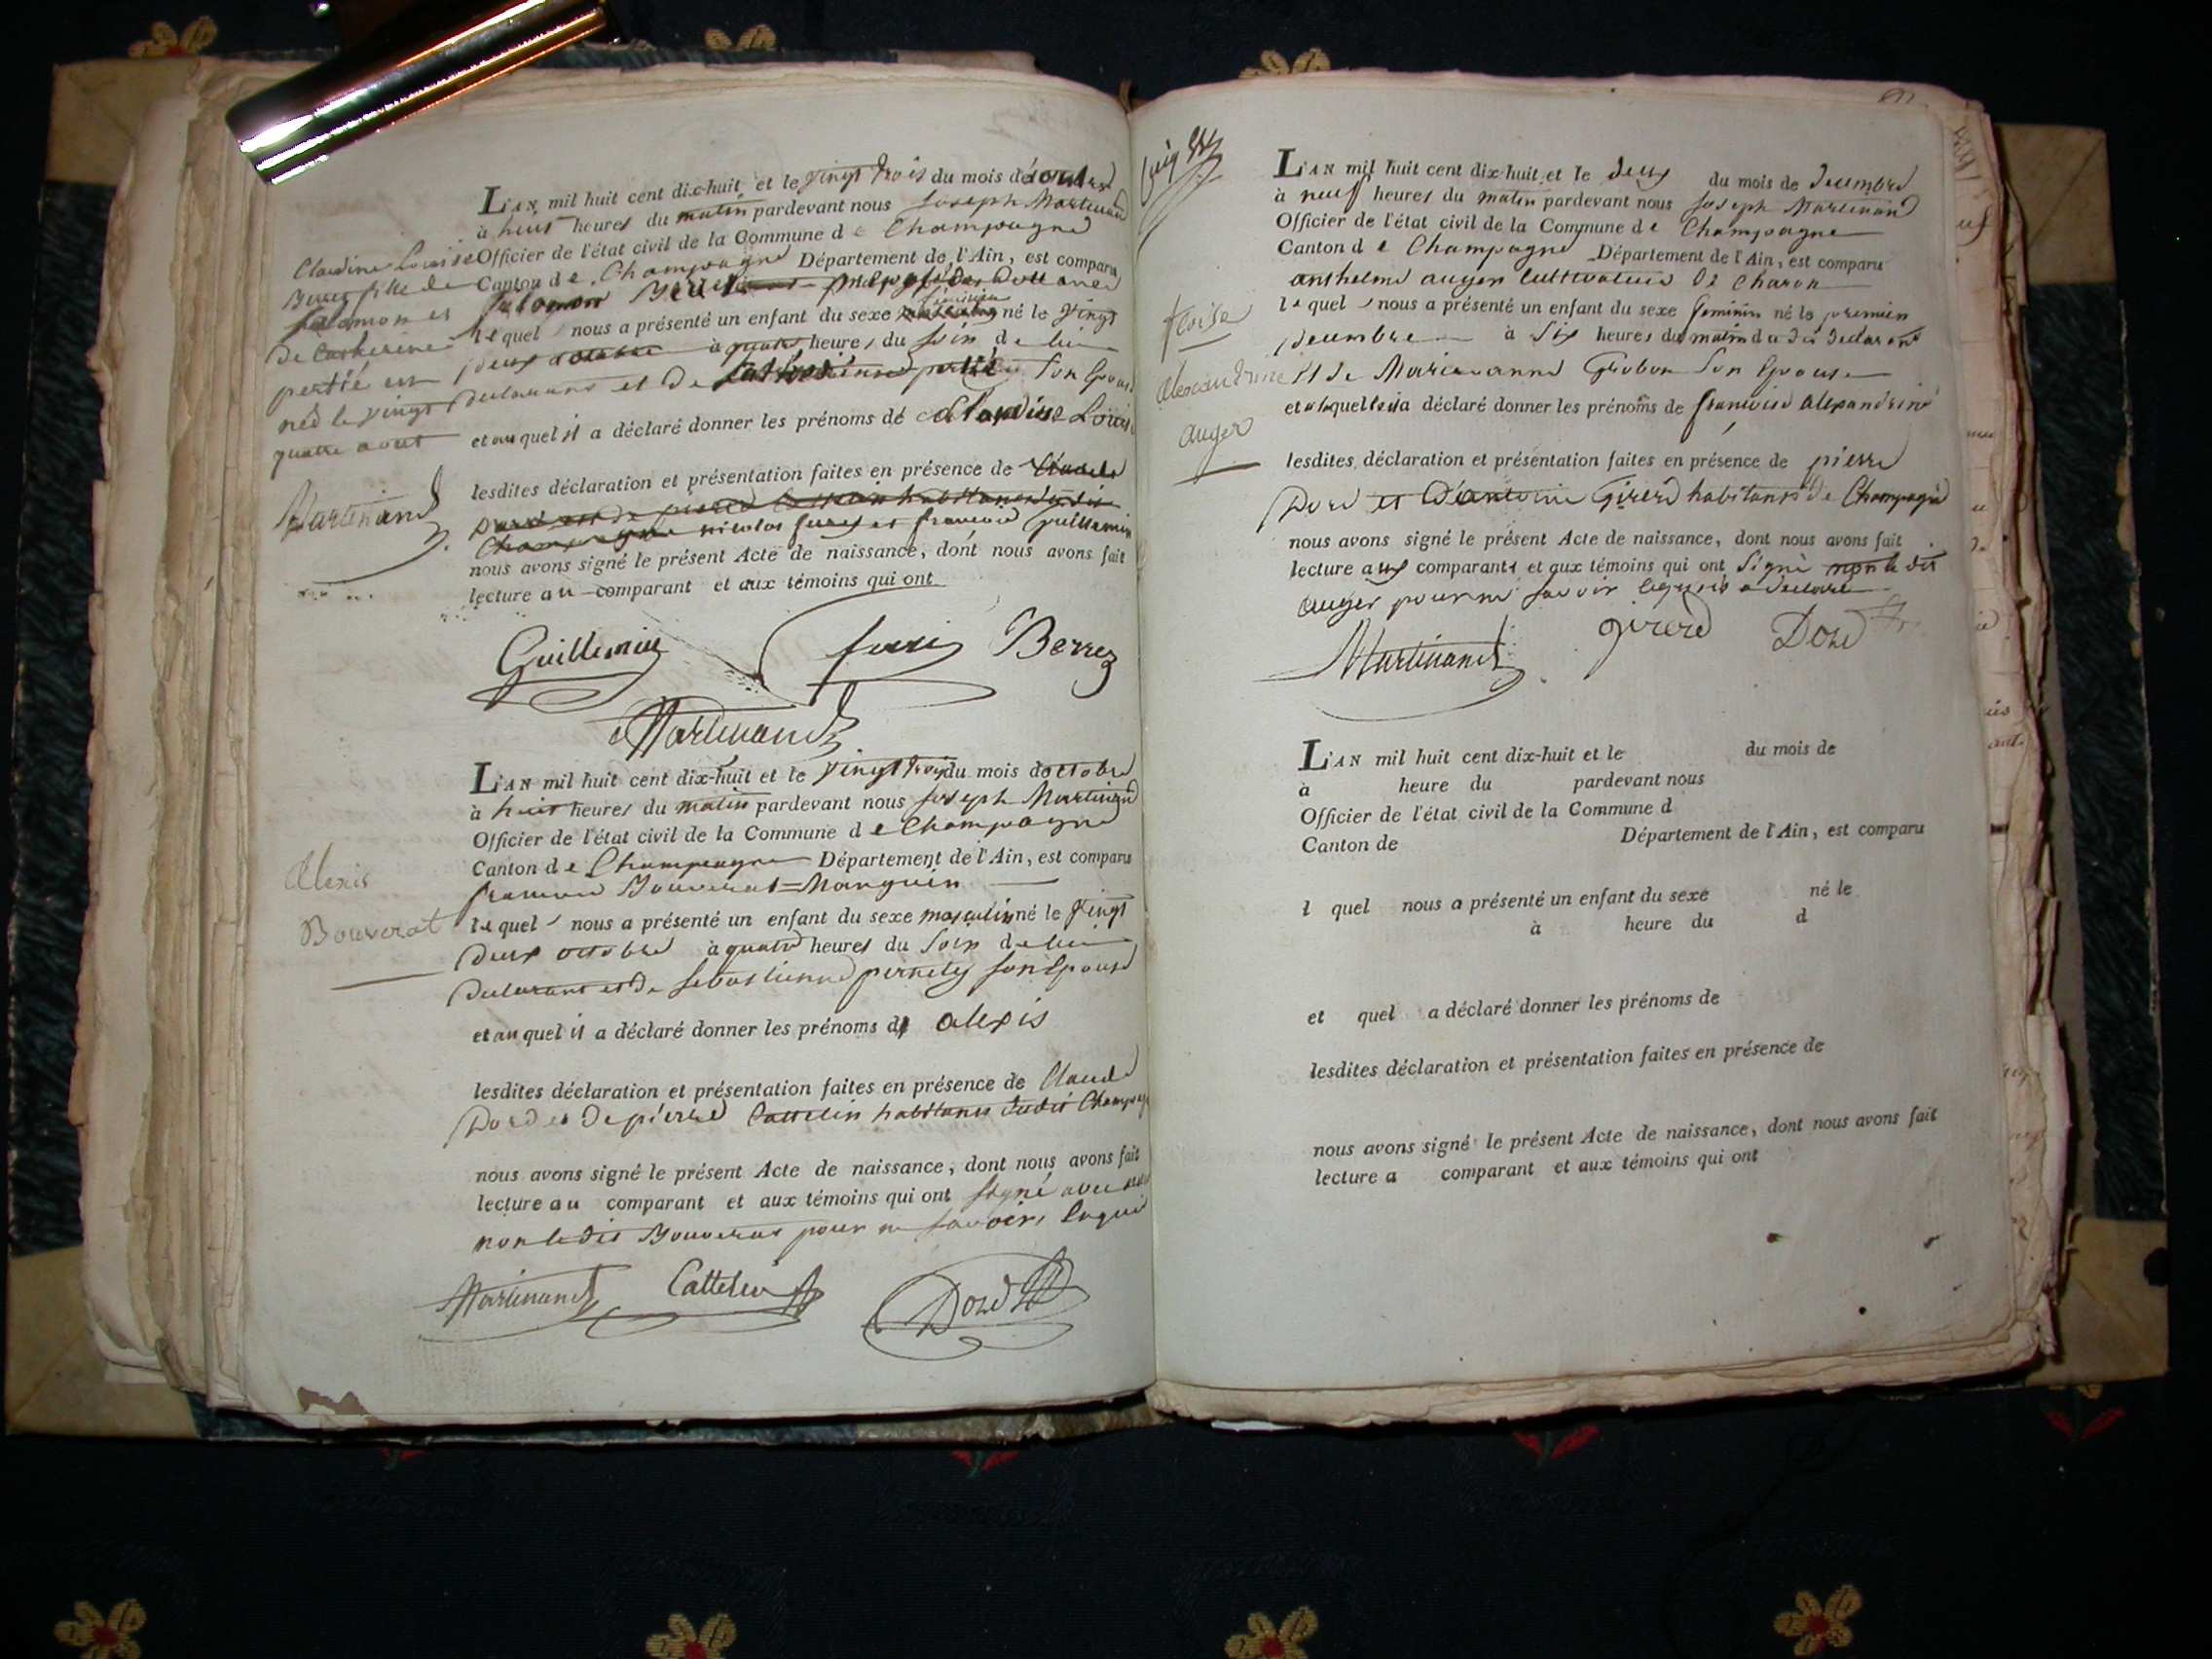 Claudine Louise
Berrez fille de
Salomon et
de Catherine
pertié
née le vingt
quatre aout
Martinand
L'AN mil huit cent dix-huit et le vingt trois du mois d'
à huit heures du matin pardevant nous Joseph Martinand
Officier de l'état civil de la Commune de Champagne
Canton de Champagne Département de l'Ain, est comparu
Salomon
lequel nous a présenté un enfant du sexe né le vingt
deux octobre à quatre heures du soir de lui
declarant et de son Epouse
et au quel il a déclaré donner les prénoms de Claudine Louise
lesdites déclaration et présentation faites en présence de Claude
Dord et de pierre Cattelin habitans dudit
Champagne nicolas et francois guillemin
nous avons signé le présent Acte de naissance, dont nous avons fait
lecture au comparant et aux témoins qui ont
Guillemin Berrez
Martinand
Alexis
Bouverat
L'AN mil huit cent dix-huit et le vingt trois du mois doctobre
à huit heures du matin pardevant nous Joseph Martinand
Officier de l'état civil de la Commune de Champagne
Canton de Champagne Département de l'Ain, est comparu
francois Bouverat=Manguin
lequel nous a présenté un enfant du sexe masculin né le vingt
deux octobre à quatre heures du soir de lui
declarant et de sebastienne pernety son Epouse
et au quel il a déclaré donner les prénoms de alexis
lesdites déclaration et présentation faites en présence de Claude
Dord et de pierre Cattelin habitans dudit Champagne
nous avons signé le présent Acte de naissance, dont nous avons fait
lecture au comparant et aux témoins qui ont signé avec nous
non ledit Bouverat pour ne savoir, Enquis
Martinand Cattelin Dord
L'AN mil huit cent dix-huit et le deux du mois de decembre
à neuf heures du matin pardevant nous Joseph Martinand
Officier de l'état civil de la Commune de Champagne
Canton de Champagne Département de l'Ain, est comparu
anthelme auger Cultivateur de Charon
lequel nous a présenté un enfant du sexe feminin né le premier
decembre à six heures du matin dudit declarant
et de Marieanne Grobon son Epouse
et a laquelle il a déclaré donner les prénoms de francoise alexandrine
lesdites déclaration et présentation faites en présence de pierre
Dord et d'antoine Girerd habitants de Champagne
nous avons signé le présent Acte de naissance, dont nous avons fait
lecture aux comparants et aux témoins qui ont signé non le dit
auger pour ne savoir Enquis a declaré
Martinand girerd Dord
froise
alexandrine
auger
L'AN mil huit cent dix-huit et le du mois de
à heure du pardevant nous
Officier de l'état civil de la Commune d
Canton de Département de l'Ain, est comparu
l quel nous a présenté un enfant du sexe né le
à heure du d
et quel a déclaré donner les prénoms de
lesdites déclaration et présentation faites en présence de
nous avons signé le présent Acte de naissance, dont nous avons fait
lecture a comparant et aux témoins qui ont